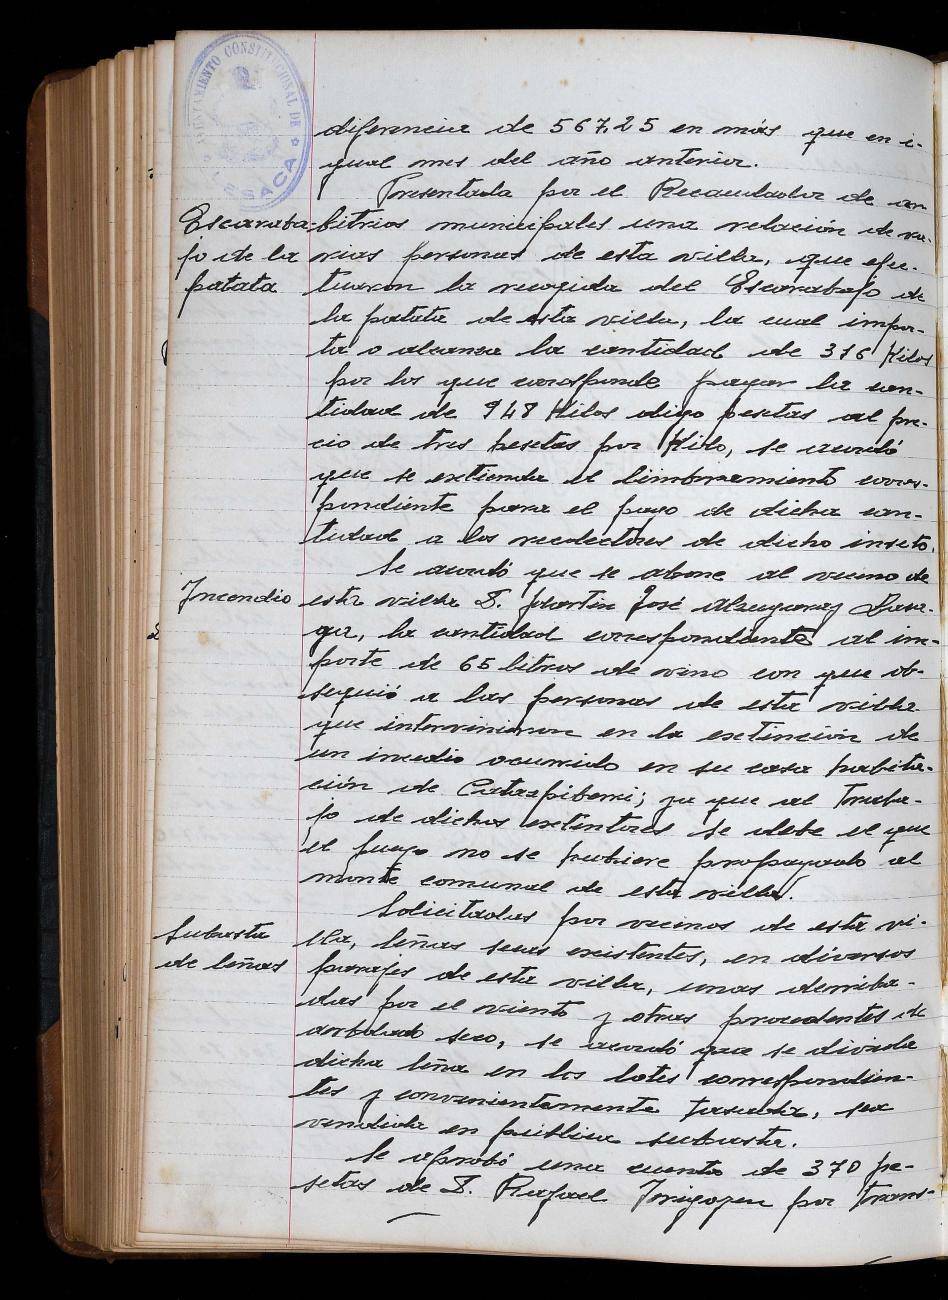 AYUNTAMIENTO CONSTITUCIONAL DE
LESACA
diferencia de 567,25 en más que en i-
gual mes del año anterior.
Presentada por el Recaudador de ar-
Escaraba-
jo de la
patata
bitrios municipales una relación de va-
rias personas de esta villa, que efec-
tuaron la recogida del Escarabajo de
la patata de esta villa, la cual impor-
ta o alcanza la cantidad de 316 Kilos
por los que corresponde pagar la can-
tidad de 948 Kilos digo pesetas al pre-
cio de tres pesetas por Kilo, se acordó
que se extienda el limbramiento corres-
pondiente para el pago de dicha can-
tidad a los recolectores de dicho inseto.
Se acordó que se abone al vecino de
Incendio
esta villa D. Martin José Alzuguray
ga, la cantidad correspondiente al im-
porte de 65 litros de vino con que ob-
sequió a las personas de esta villa
que intervinieron en la extinción de
un incedio ocurrido en su casa habita-
ción de ; ya que al Traba-
jo de dichos extintores se debe el que
el fuego no se hubiere propagado al
monte comunal de esta villa.
Solicitadas por vecinos de esta vi-
Subasta
de leñas
lla, leñas secas existentes, en diversos
parajes de esta villa, unas derriba-
das por el viento y otras procedentes de
arbolado seco, se acordó que se divida
dicha leña en los lotes correspondien-
tes y convenientemente tasada, sea
vendida en pública subasta.
Se aprobó una cuenta de 370 pe-
setas de D. Rafael Irigoyen por trans-